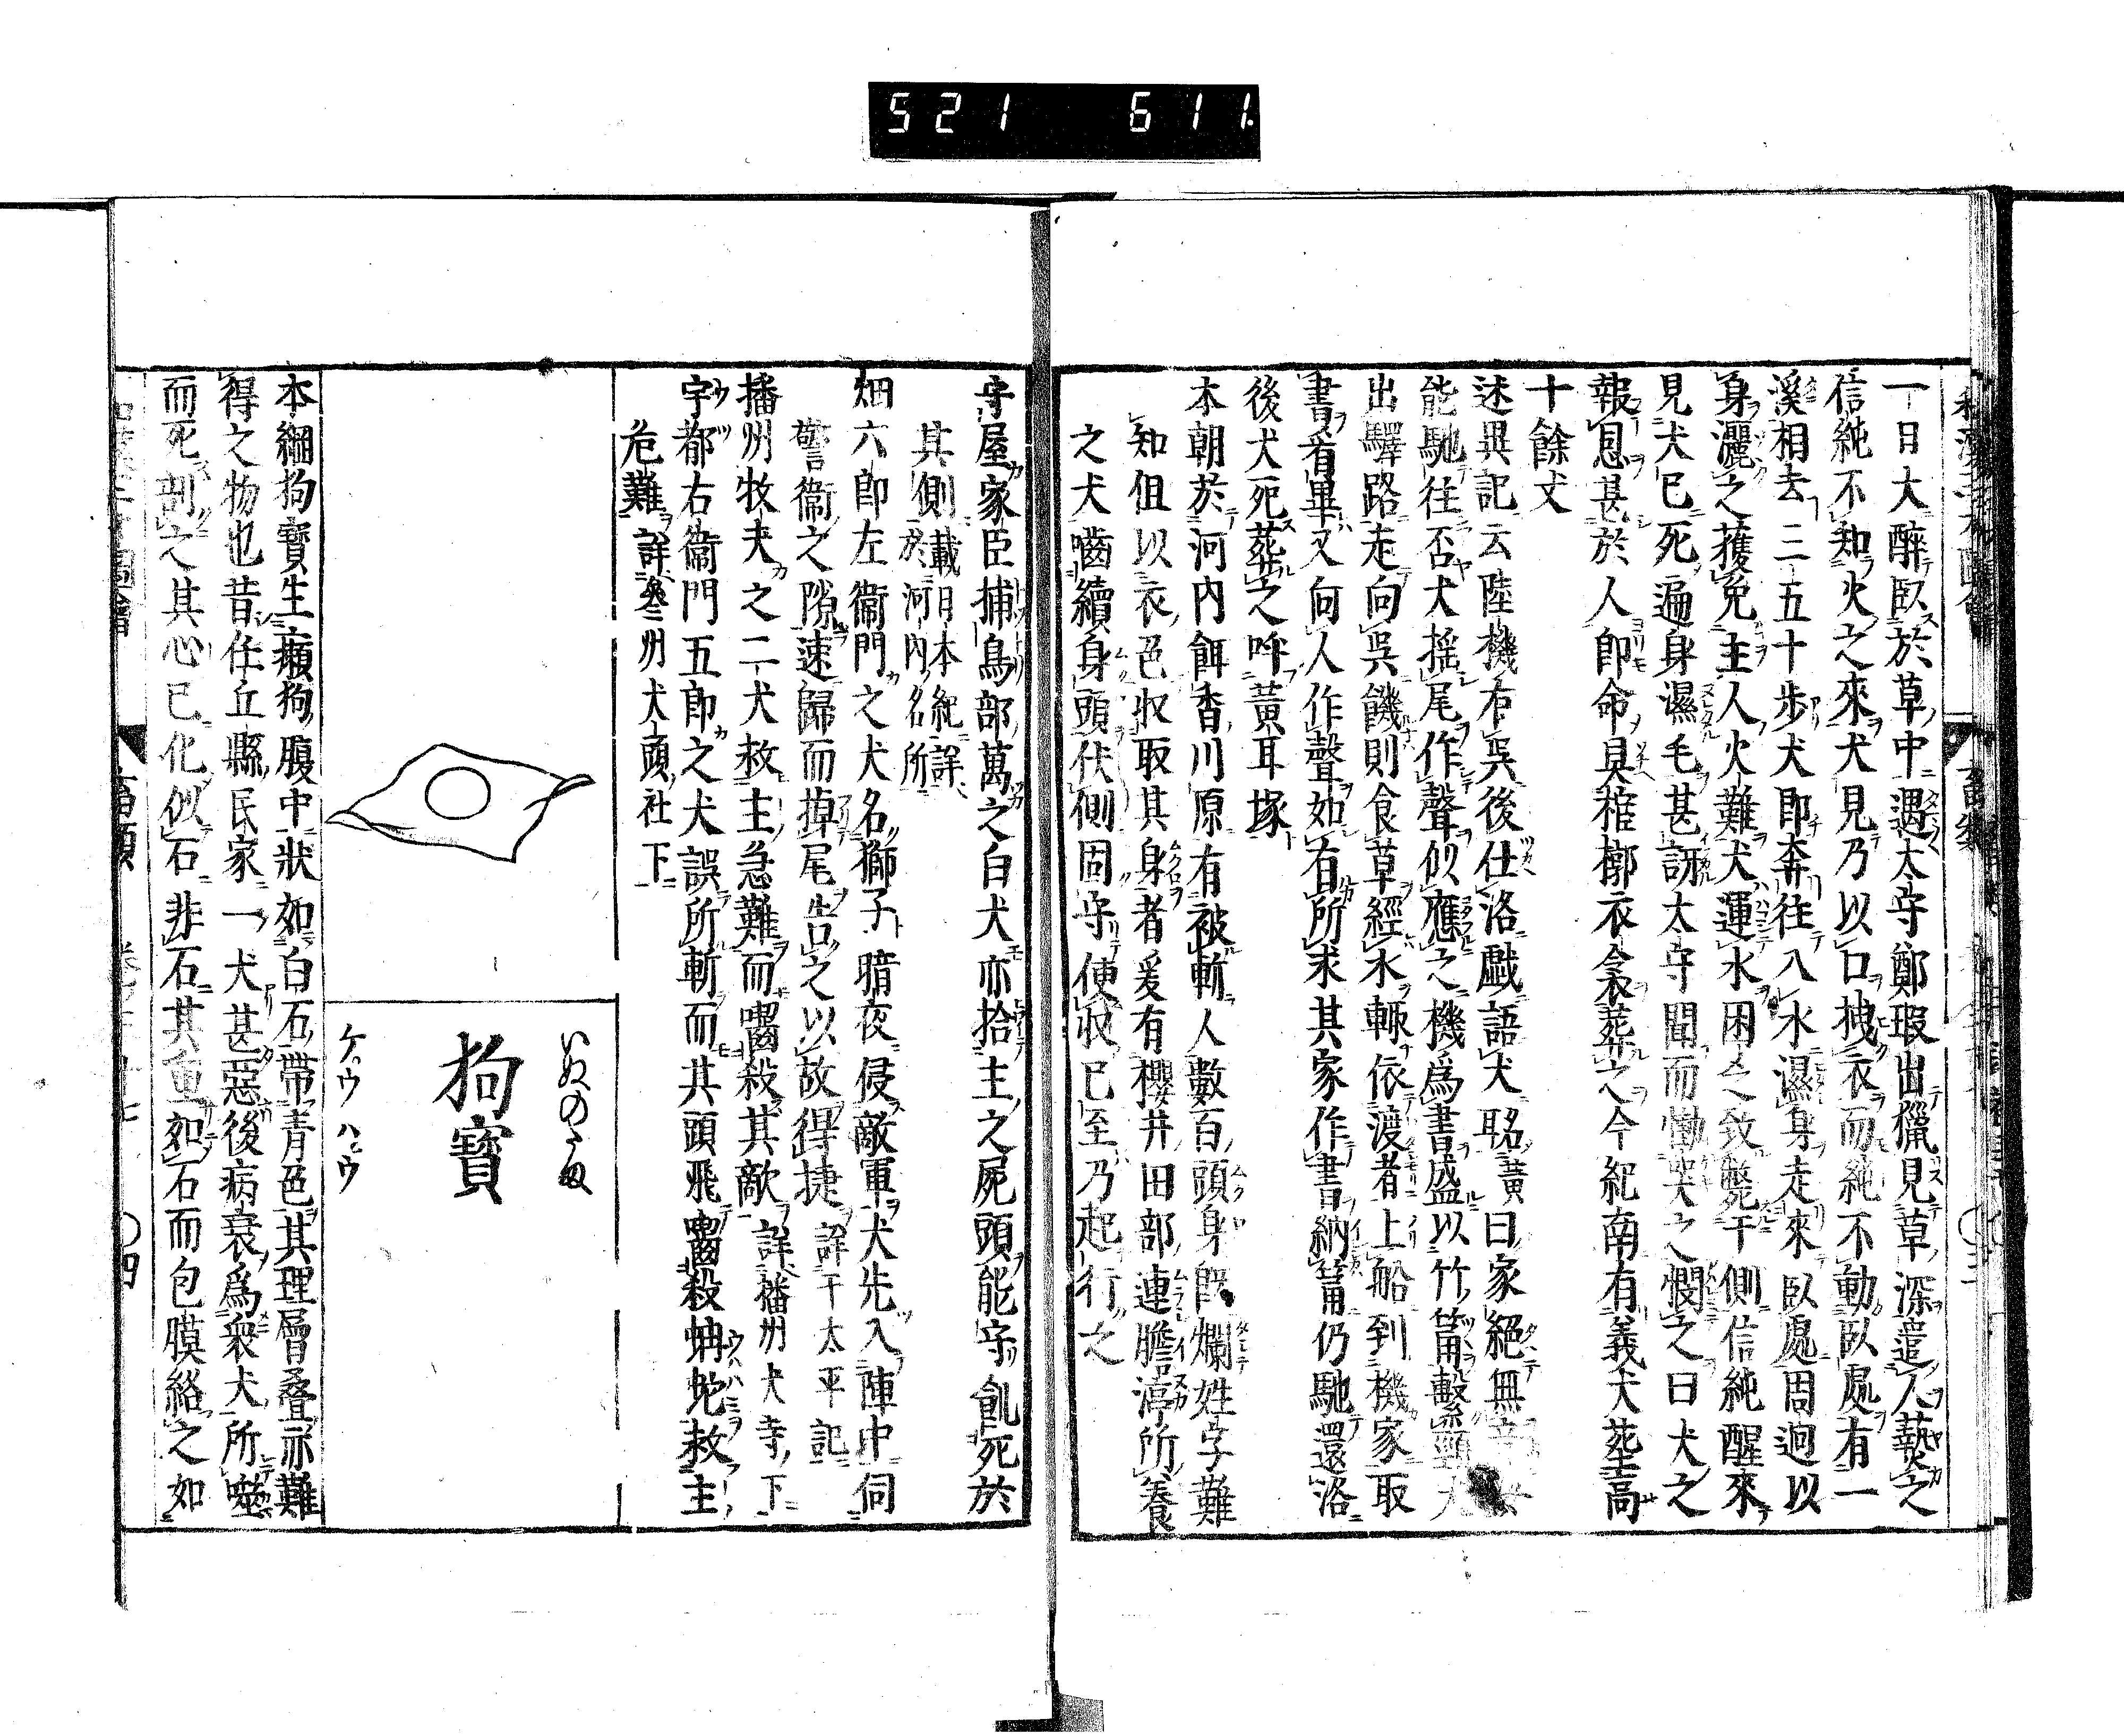 521 611.
一日大醉臥於草中遇太守鄭瑕出獵見草深遣人爇之
信純不知火之來犬見乃以口拽衣而純不動臥處有一
溪相去三五十步犬即奔往入水濕身走來臥處周迴以
身灑之獲免主人火難犬運水困乏致斃于側信純醒來
見犬已死遍身濕毛甚訝太守聞而慟哭之憫之曰犬之
報恩甚於人即命具棺槨衣衾葬之今紀南有義犬塟高
十餘丈
述異記云陸機在吳後仕洛戱語犬名黃曰家絕無
能馳往否犬搖尾作聲似應之機爲書盛以竹筩繫頸犬
出驛路走向吳饑則食草經水輙依渡者上船到機家取
書看畢又向人作聲如有所求其家作書納筩仍馳還洛
後犬死葬之呼黃耳塚
本朝於河内餌香川原有被斬人數百頭身既爛姓字難
知但以衣色收取其身者爰有櫻井田部連膽渟所養
之犬嚙續身頭伏側固守使收已至乃起行之
守屋家臣捕鳥部萬之白犬亦拾主之屍頭能守飢死於
其側載日本紀詳於河内名所
畑六郎左衞門之犬名獅子暗夜侵敵軍犬先入陣中伺
警衞之隙速歸而掉尾告之以故得捷詳于太平記
播州牧夫之二犬救主急難而嚙殺其敵詳播州犬寺下
宇都右衞門五郎之犬誤所斬而其頭飛嚙殺蚺蛇救主
危難詳參州犬頭社下
いぬのたま
狗寶
ケ゚ウ パウ
本綱狗寶生癩狗腹中狀如白石帶青色其理層叠亦難
得之物也昔任丘縣民家一犬甚惡後病衰爲衆犬所噬
而死剖之其心已化似石非石其重如石而包膜絡之如
畜類
〇四